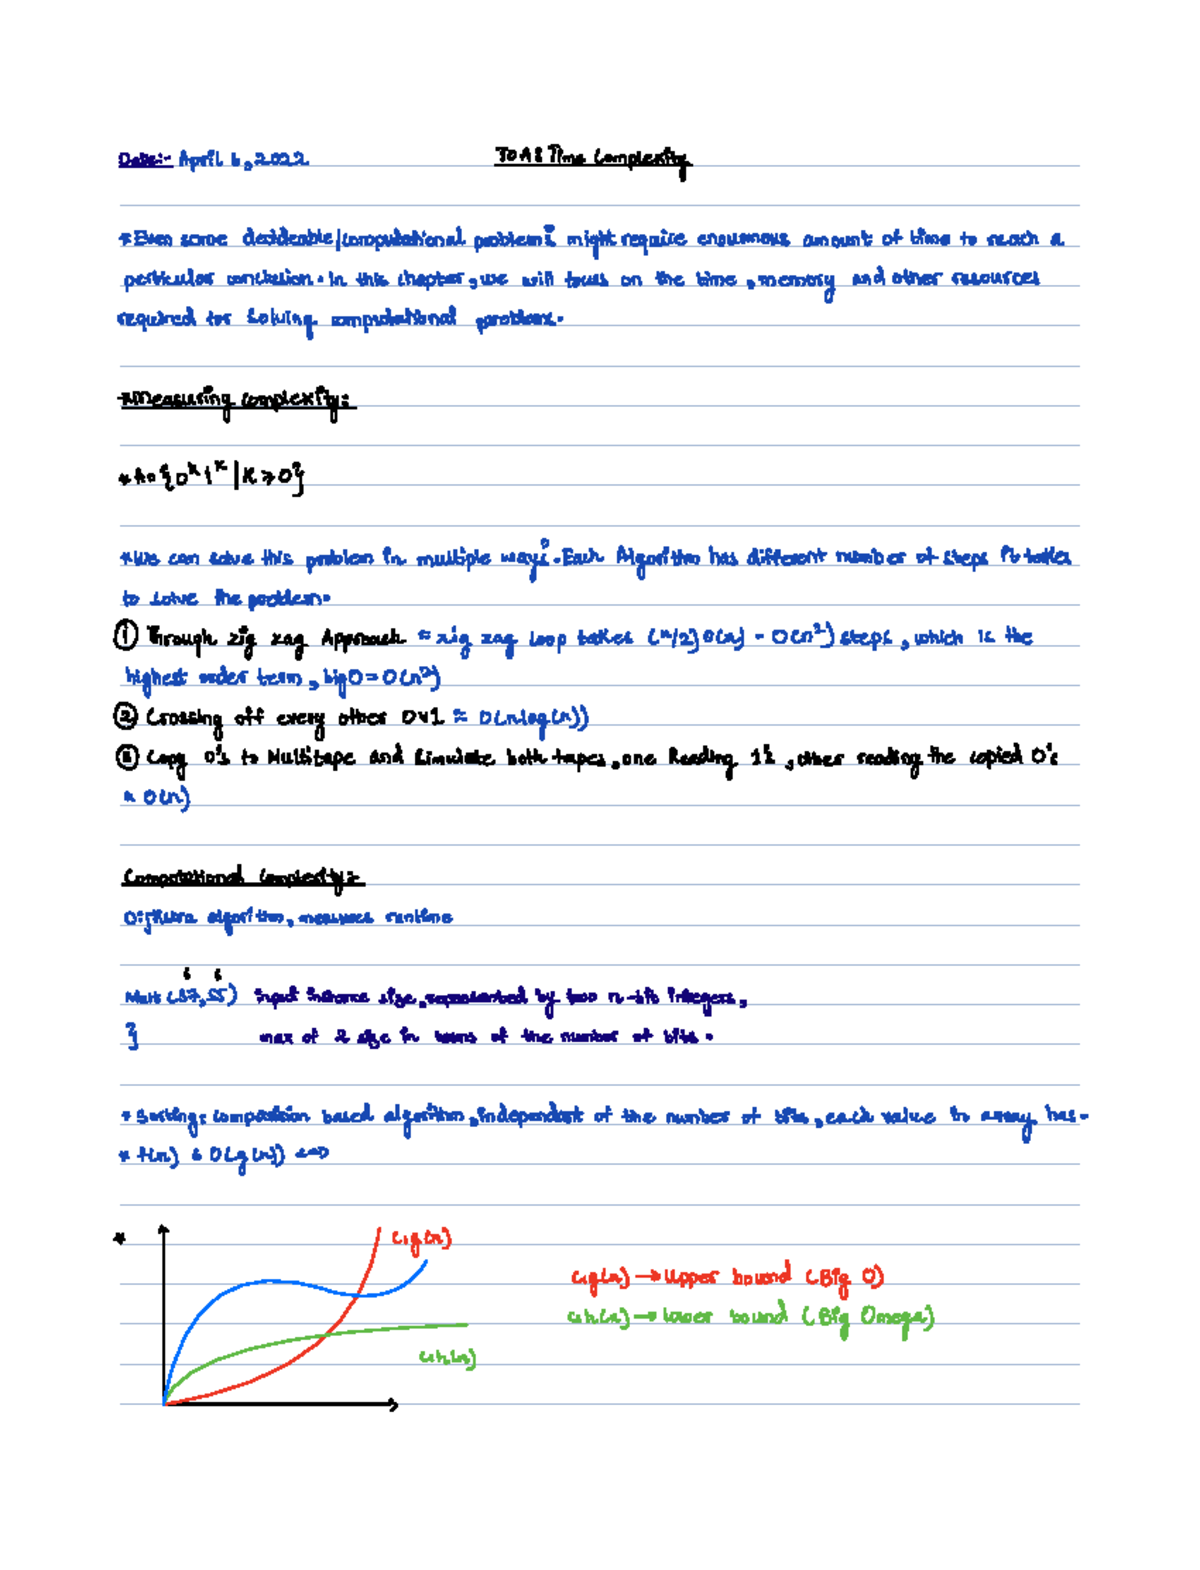 Date:- April 6, 2022
TOA: Time Complexity
*Even some decideable/computational problems might require enourmous amount of time to reach a
perticular conclusion. In this chapter, we will focus on the time, memory and other resources
required for solving computational problems.
*Measuring Complexity:
*A={0^k 1^k | K ≥ 0}
*We can solve this problem in multiple ways. Each Algorithm has different number of steps it takes
to solve the problem.
① Through zig zag Approach ≈ zig zag loop takes (n/2) O(n) = O(n²) steps, which is the
highest order term, big O = O(n²)
② Crossing off every other 0 & 1 ≈ O(n log(n))
③ Copy 0's to Multitape and Simulate both tapes, one Reading 1's, other reading the copied 0's
≈ O(n)
Computational Complexity:-
Dijkstra algorithm, measures runtime
6 6
Mult (37,55) input instance size, represented by two n-bit integers,
} max of 2 size in terms of the number of bits.
* Sorting: comparision based algorithm, independent of the number of bits, each value in array has-
* f(n) O(g(n))
*
c₁g(n)
c₁g(n) → Upper bound (Big O)
c₁h(n) → lower bound (Big Omega)
c₁h(n)